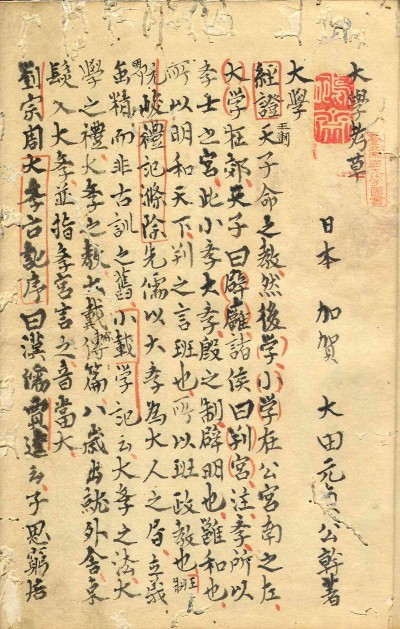 大學考草
日本 加賀 大田元 公幹著
大學
經證 王制 天子命之教然後学小学在公宮南之左
大学在郊天子曰辟廱諸侯曰判宮注孝所以
孝士之宮此小孝大孝殷之制辟明也雝和也
所以明和天下判之言班也所以班政教也 王制
峻禮記滌除先儒以大孝為大人之局立義
雖精而非古訓之舊小戴学記云大孝之法大
學之禮大孝之教大戴傅篇八歲出就外舍束
髮入大孝並指孝宮言之音當大
劉宗周大孝古記序曰漢儒賈逵云子思窮居